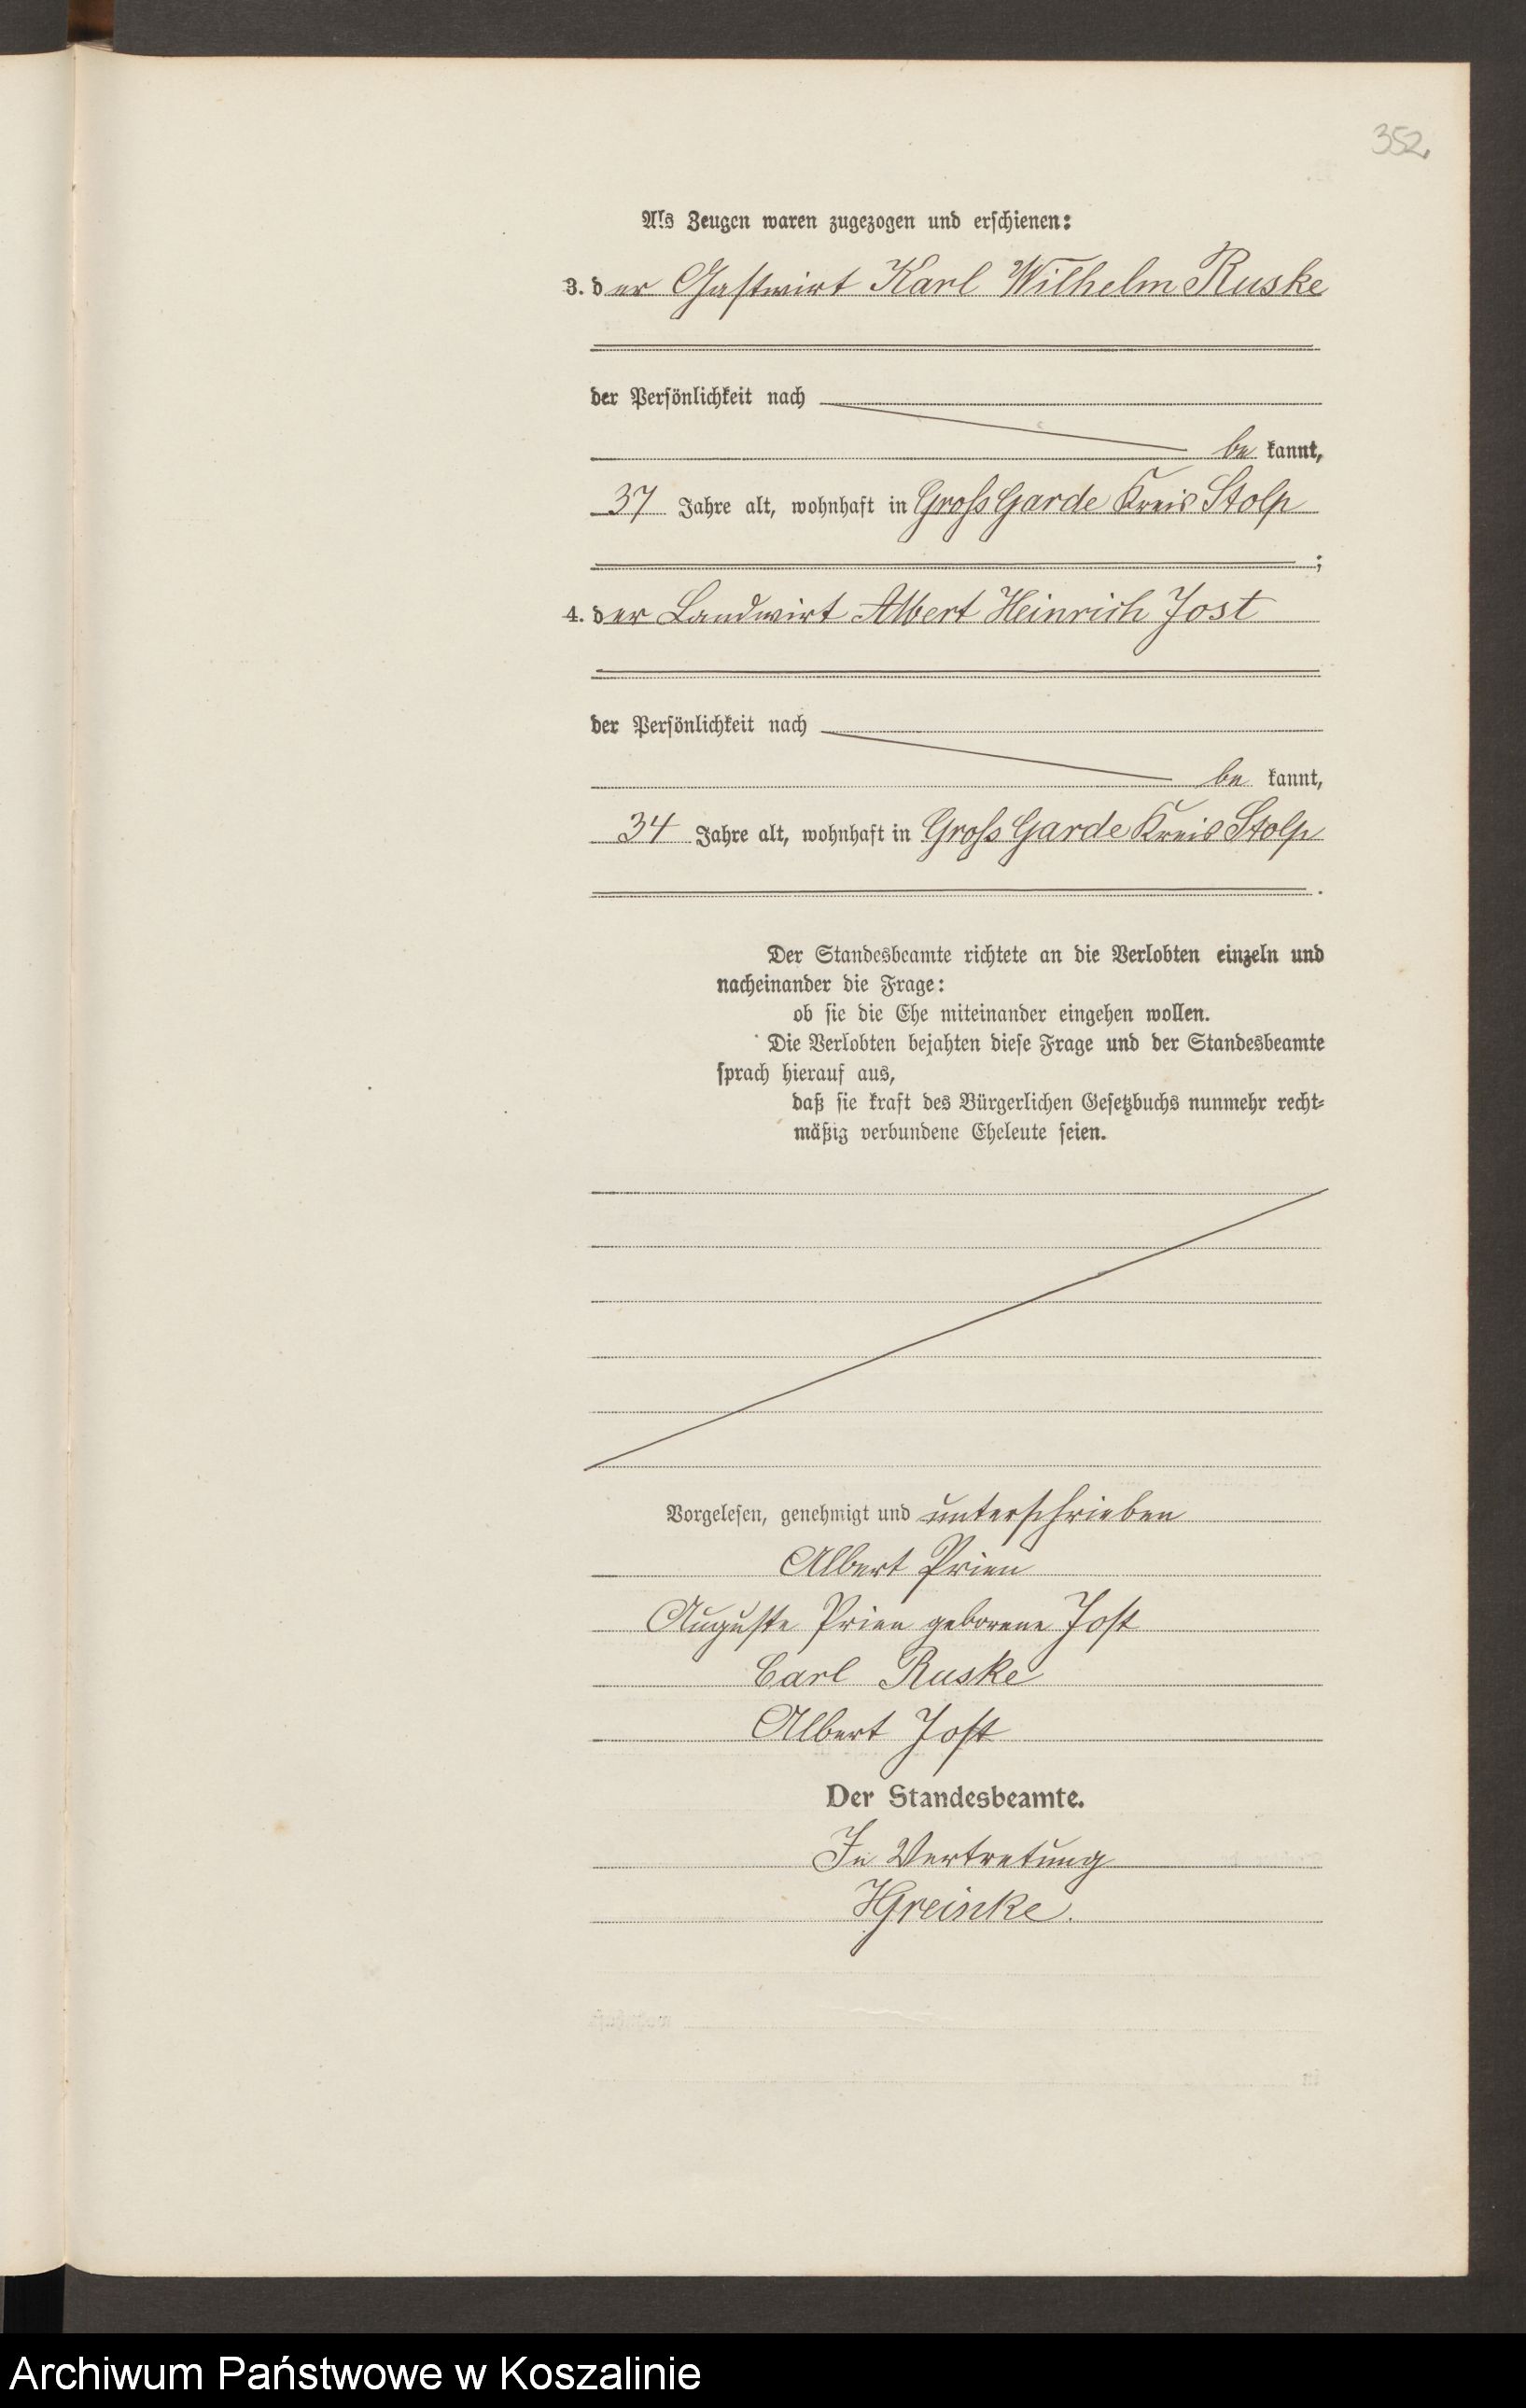 352.
Als Zeugen waren zugezogen und erschienen:
3. der Gastwirt Karl Wilhelm Ruske
der Persönlichkeit nach
be kannt,
37 Jahre alt, wohnhaft in Gross Garde Kreis Stolp
;
4. der Landwirt Albert Heinrich Jost
der Persönlichkeit nach
be kannt,
34 Jahre alt, wohnhaft in Gross Garde Kreis Stolp
.
Der Standesbeamte richtete an die Verlobten einzeln und
nacheinander die Frage:
ob sie die Ehe miteinander eingehen wollen.
Die Verlobten bejahten diese Frage und der Standesbeamte
sprach hierauf aus,
daß sie kraft des Bürgerlichen Gesetzbuchs nunmehr recht-
mäßig verbundene Eheleute seien.
Vorgelesen, genehmigt und unterschrieben
Albert Prien
Auguste Prien geborene Jost
Carl Ruske
Albert Jost
Der Standesbeamte.
In Vertretung
HGreinke.
Archiwum Państwowe w Koszalinie